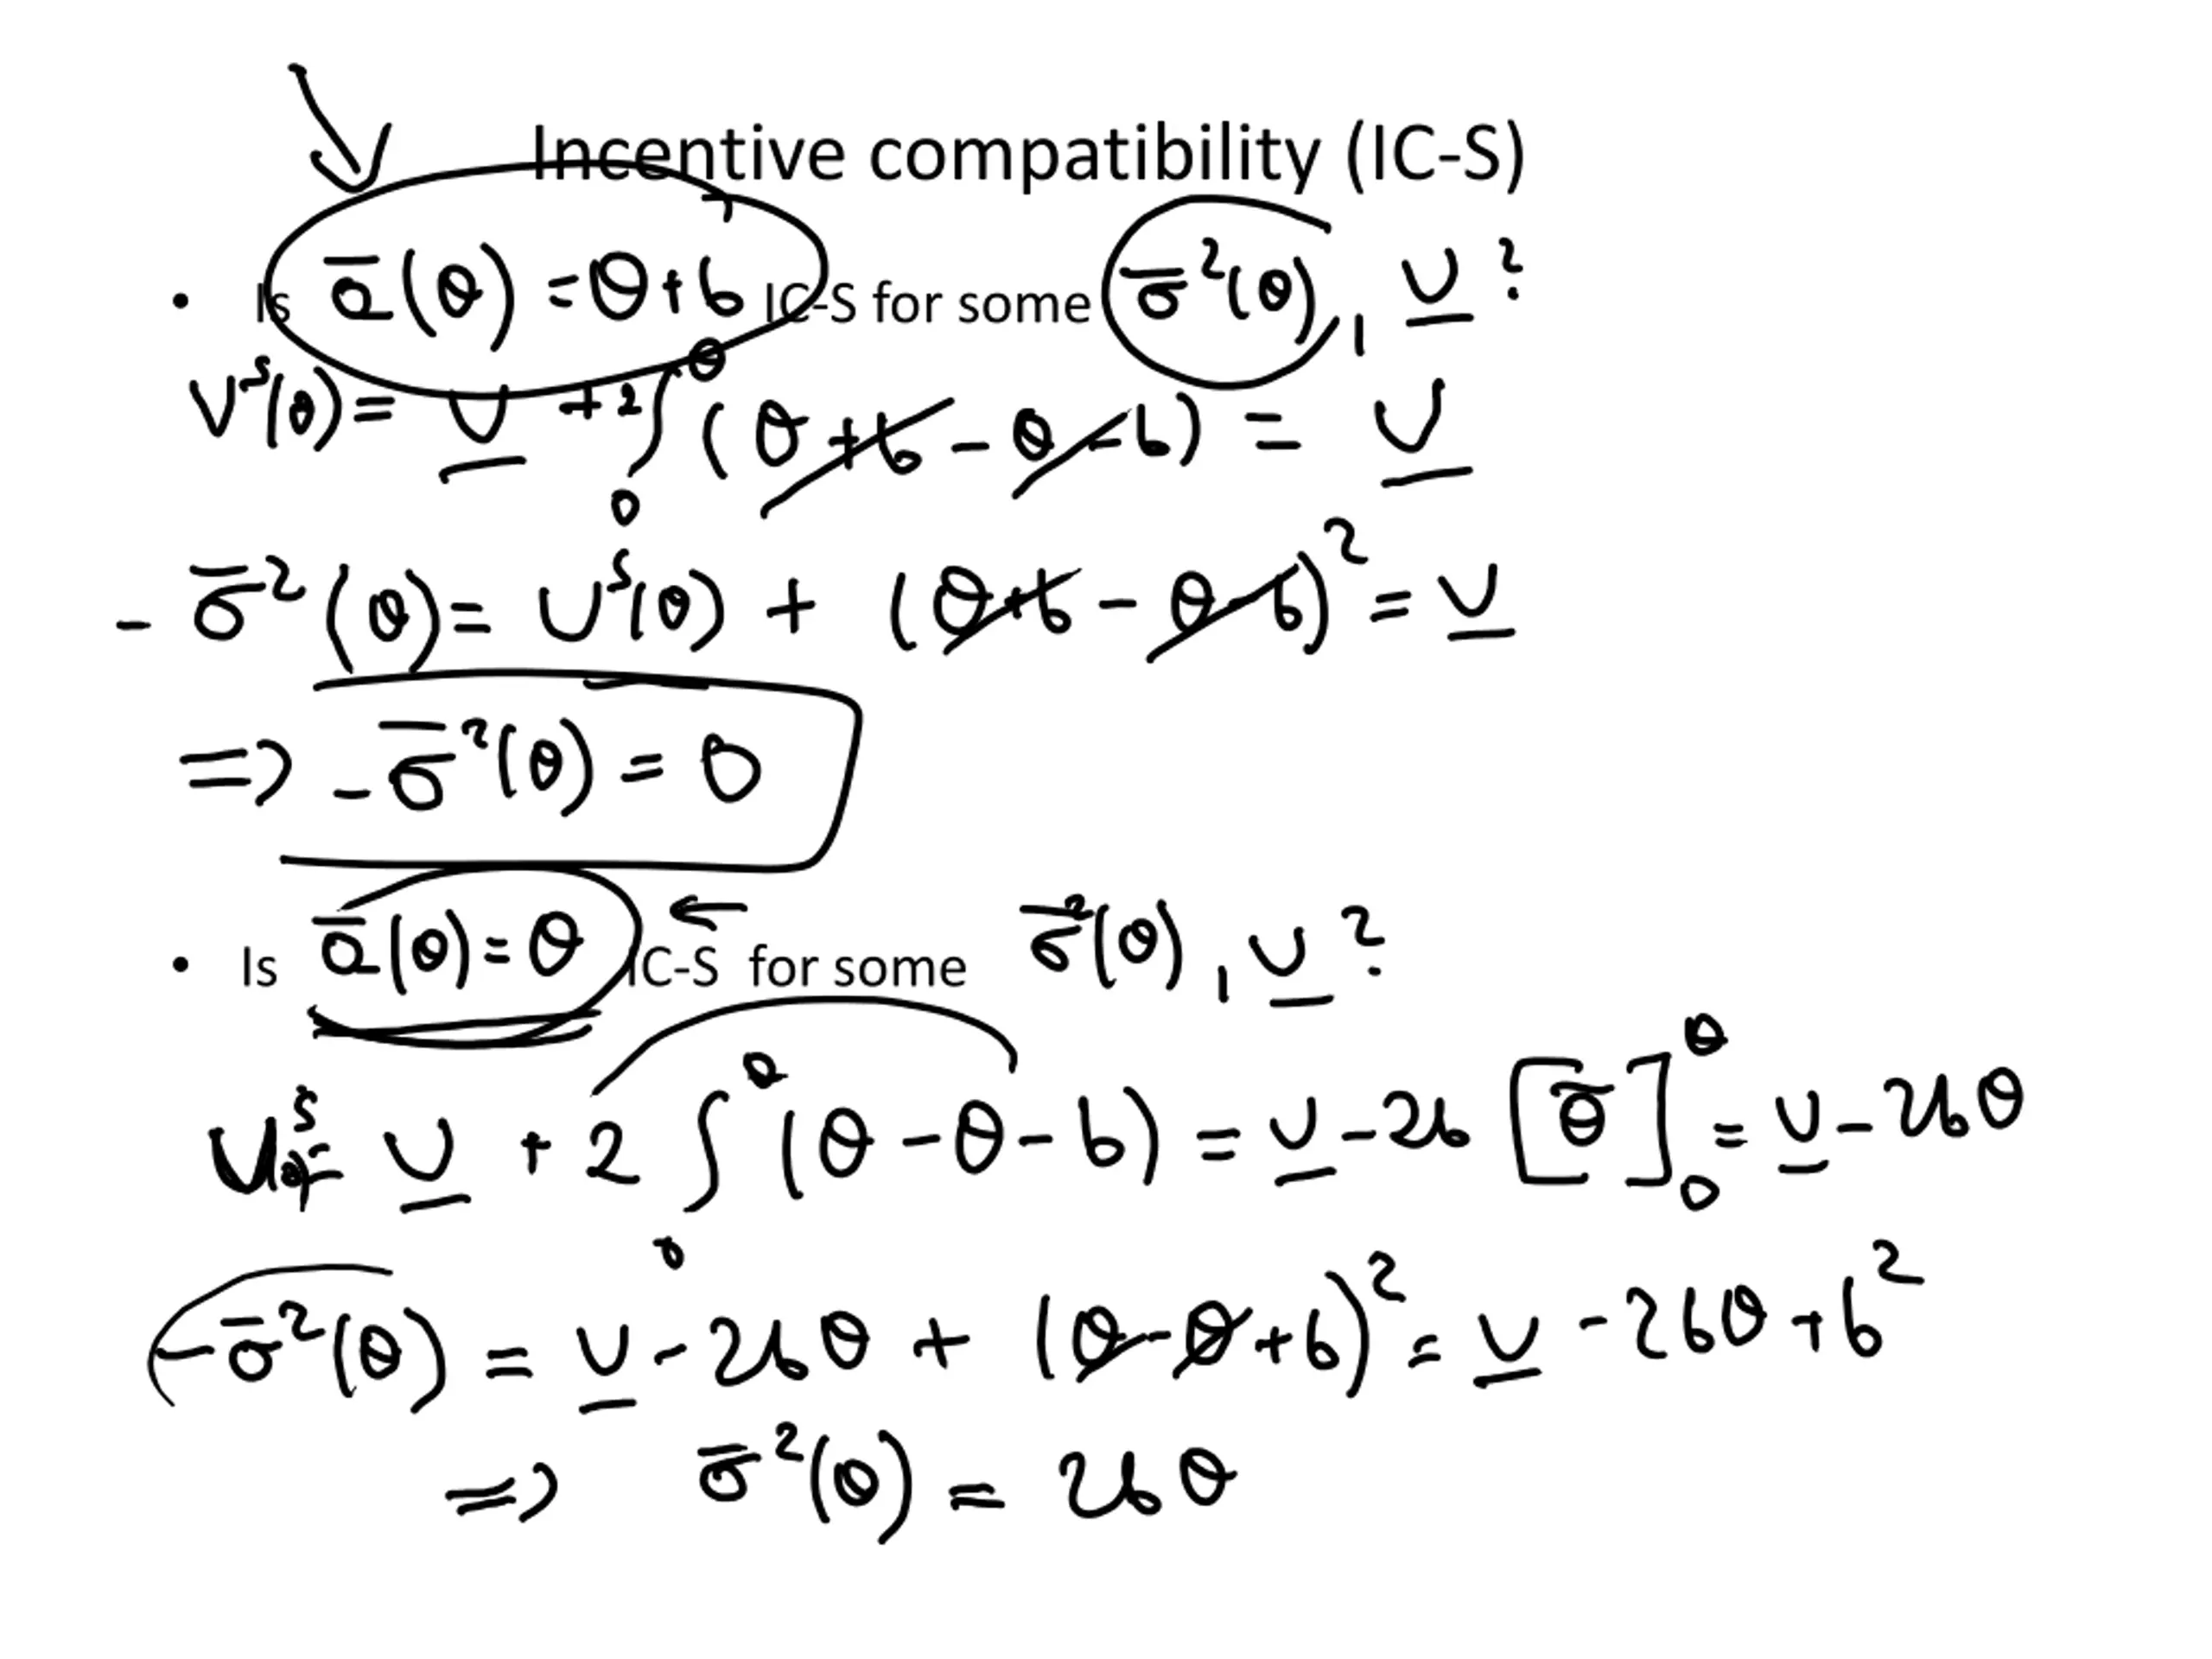 Incentive compatibility (IC-S)
• Is ā(θ) = θ+b IC-S for some σ̄²(θ), U̲ ?
Uˢ(θ) = U̲ + 2∫₀^θ (θ+b-θ-b) = U̲
-σ̄²(θ) = Uˢ(θ) + (θ+b-θ-b)² = U̲
=> -σ̄²(θ) = 0
• Is ā(θ) = θ IC-S for some σ̄²(θ), U̲ ?
Uˢ = U̲ + 2∫₀^θ (θ-θ-b) = U̲ - 2b [θ̃]₀^θ = U̲ - 2bθ
-σ̄²(θ) = U̲ - 2bθ + (θ-θ+b)² = U̲ - 2bθ + b²
=> σ̄²(θ) = 2bθ